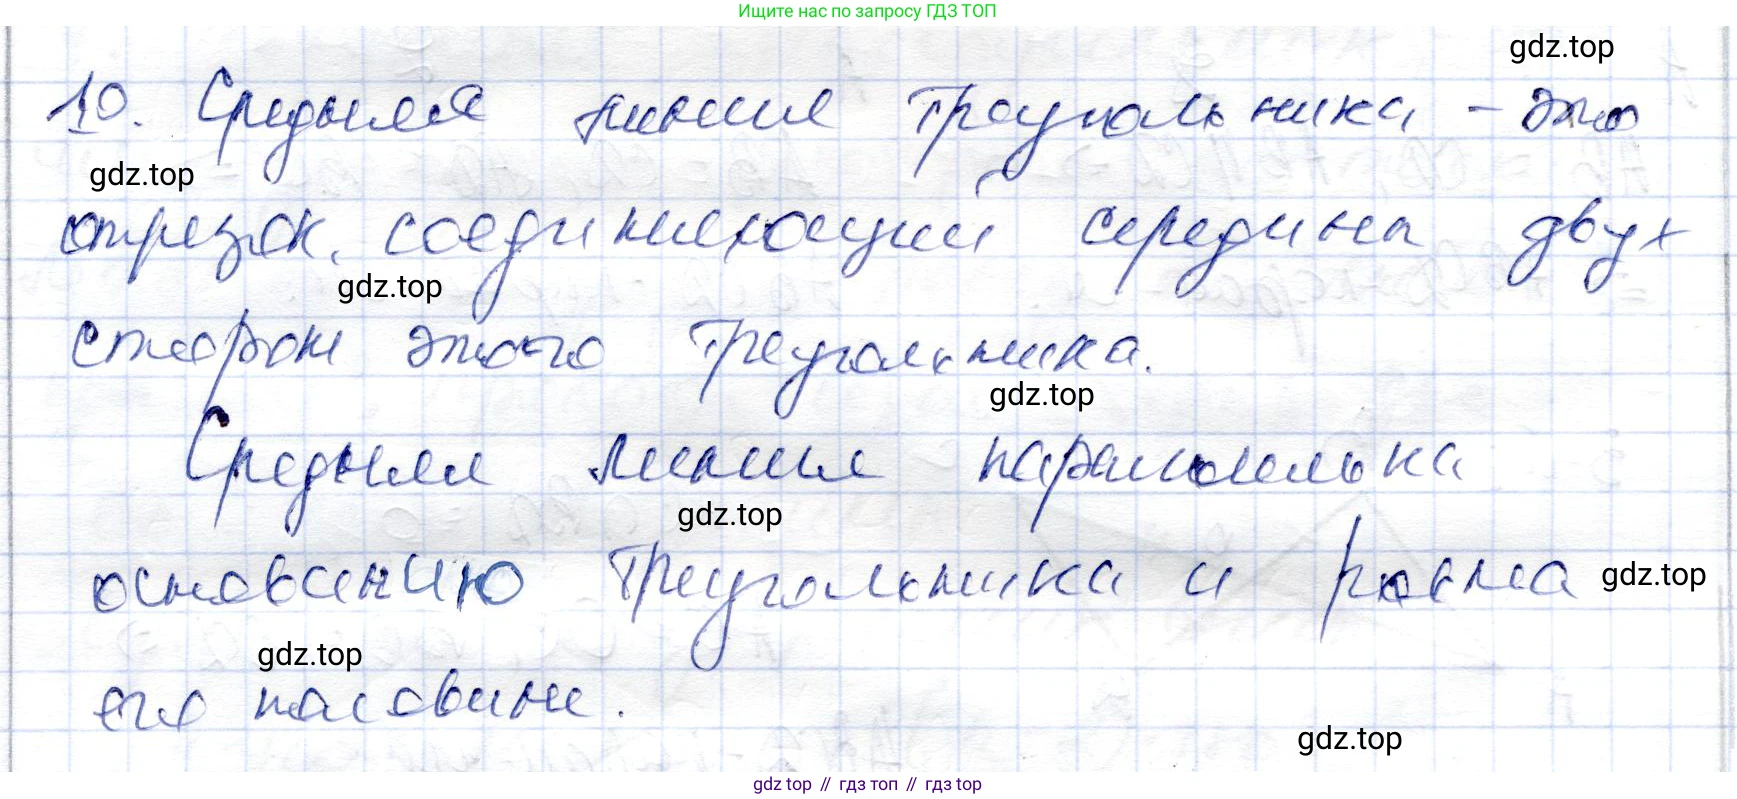 Ищите нас по запросу ГДЗ ТОП
gdz.top
10. Средняя линия треугольника - это
gdz.top
отрезок, соединяющий середины двух
gdz.top
сторон этого треугольника.
gdz.top
Средняя линия параллельна
gdz.top
основанию треугольника и равна
gdz.top
gdz.top
его половине.
gdz.top
gdz top // гдз топ // гдз top